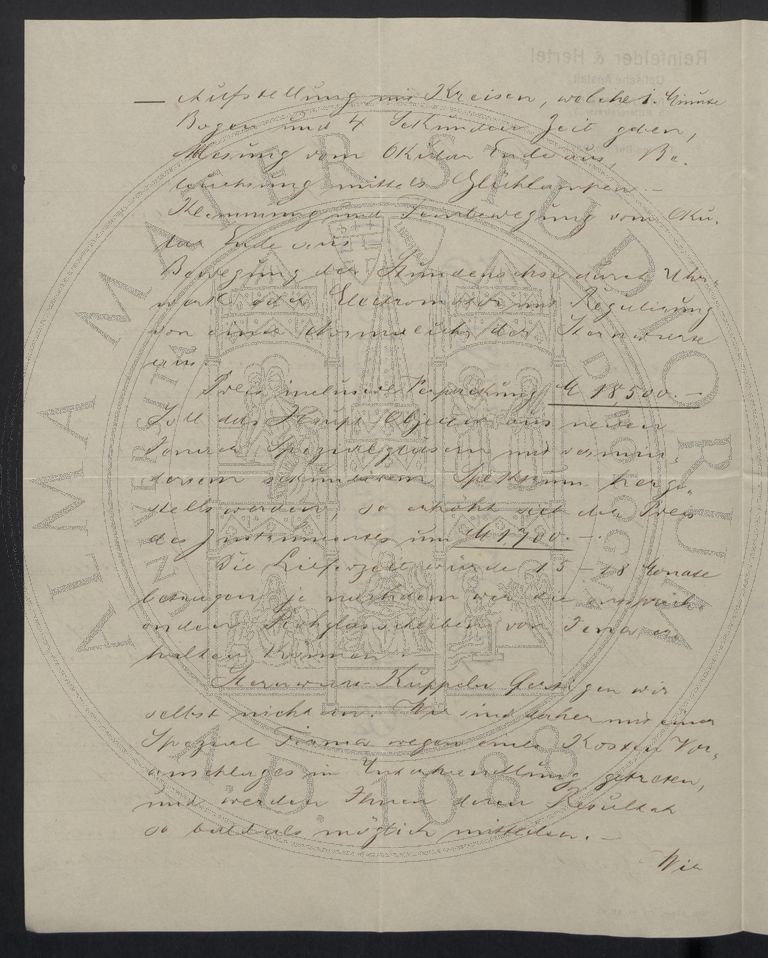 — Aufstellung mit Kreisen, welche 1. Minute
Bogen und 4 Sekunden Zeit geben,
Ablesung vom Okular Ende aus, Be-
leuchtung mittels Glühlampen.—
Klemmung und Feinbewegung vom Oku-
lar Ende aus
Bewegung der Stundenachse durch Uhr-
werk oder Electromotor mit Regulirung
von einer Normaluhr der Sternwarte
aus.
Preis inclusive Verpackung M 18500.—
Soll das Haupt Objectiv aus neuen
Jenaer Spezialgläsern mit vermin-
dertem sekundärem Spektrum herge-
stellt werden, so erhöht sich der Preis
des Instrumentes um M 1700.—.
Die Lieferzeit würde 15–18 Monate
betragen je nachdem wir die entsprech-
enden Rohglasscheiben von Jena er-
halten können.
Sternwarte Kuppeln fertigen wir
selbst nicht an. Wir sind daher mit einer
Spezial Firma wegen eines Kosten Vor-
anschlages in Unterhandlung getreten,
und werden Ihnen deren Resultat
so bald als möglich mitteilen.—
Wir
Reinfelder & Hertel
ALMA MATER STUDIORUM
A.D. 1088